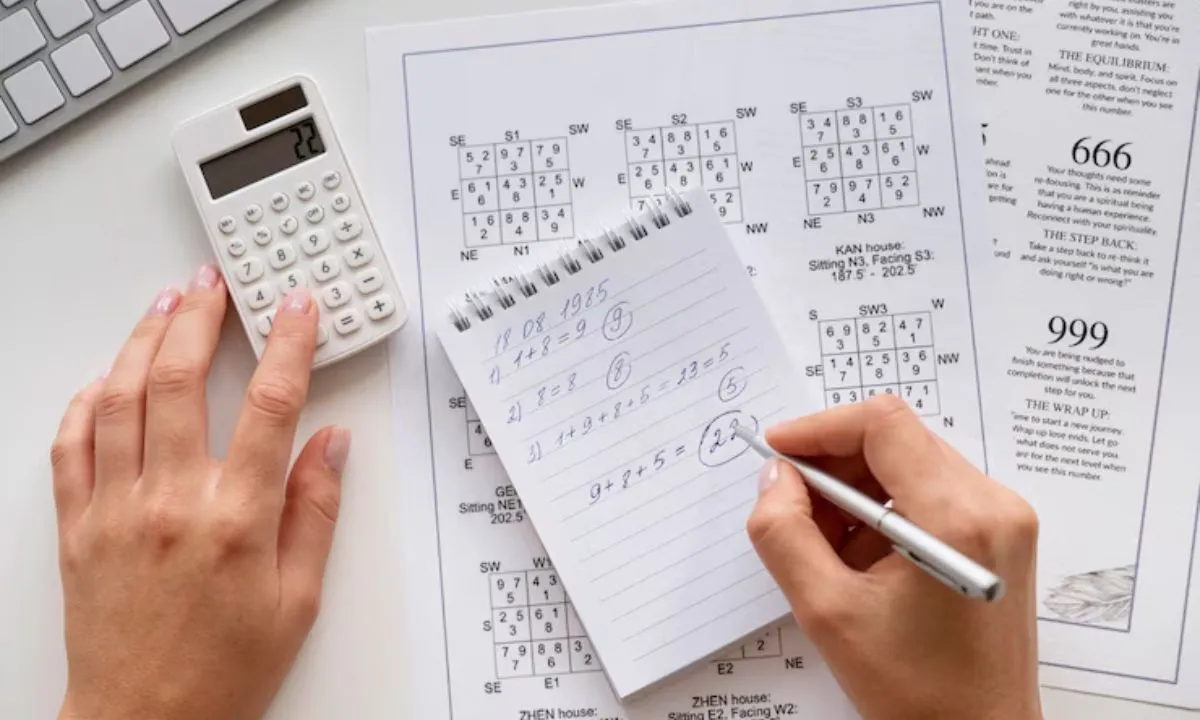 22
7 8 9 ÷
4 5 6 ×
3 −
= +
18 08 1985
1) 1+8=9 9
2) 8=8 8
3) 1+9+8+5=23=5 5
9+8+5= 22
SE S1 SW
5 2 9 7 7 9
7 3 5
E 6 1 4 3 2 5 W
6 8 1
1 6 8 8 3 4
2 4 9
NE N1
SE S2 SW
3 4 8 8 1 6
7 3 5
E 2 5 4 3 6 1 W
6
5 2
9
NW
SE S3 SW
3 4 8 8 1 6
7 3 5
E 2 5 4 3 6 1 W
6 8 6
7 9 9 7 5 2
2 4 9
NE N3 NW
KAN house:
Sitting N3, Facing S3:
187.5° - 202.5°
S SW3 W
6 9 8 2 4 7
3 5 1
SE 1 4 2 5 3 6 NW
7 8 9
7 1
4
N
SE
4
6
E
Sitting NE1
202.5°
SW W1
9 7 4 3
5 1
S 2 5 6 1
3 8
7 9 8 8 3
7 6 2
SE E1
ZHEN house:
2
E2 NE
ZHEN house:
Sitting E2, Facing W2:
you are on the
path.
HT ONE:
t time. Trust in
Don't think of
ant when you
mber.
ahead
on is
are for
getting
?
und
right by you, assisting you
with whatever it is that you're
currently working on. You're in
great hands.
THE EQUILIBRIUM:
Mind, body, and spirit. Focus on
all three aspects, don't neglect
one for the other when you see
this number.
666
Your thoughts need some
re-focusing. This is as reminder
that you are a spiritual being
having a human experience.
Reconnect with your spirituality.
THE STEP BACK:
Take a step back to re-think it
and ask yourself "is what you are
doing right or wrong?"
999
You are being nudged to
finish something because that
completion will unlock the next
step for you.
THE WRAP UP:
Time to start a new journey.
Wrap up lose ends. Let go
what does not serve you
are for the next level when
you see this number.